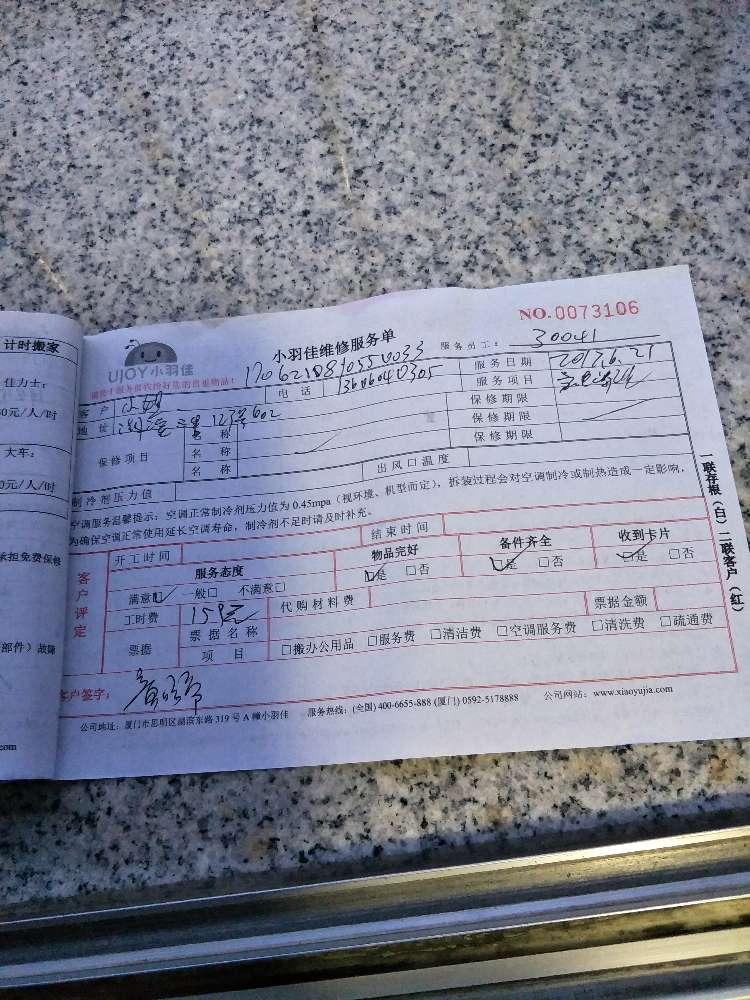 计时搬家
佳力士：
0元/人/时
大车：
0元/人/时
承担免费保修
部件）故障
com
NO.0073106
UJOY小羽佳
小羽佳维修服务单
服务员工：30041
服务日期 2017.6.21
电话 13606040305
服务项目
客户
地址
保修期限
保修期限
保修期限
保修项目
名称
名称
名称
制冷剂压力值
出风口温度
空调服务温馨提示：空调正常制冷剂压力值为 0.45mpa（视环境、机型而定），拆装过程会对空调制冷或制热造成一定影响，
为确保空调正常使用延长空调寿命，制冷剂不足时请及时补充。
开工时间
结束时间
客户评定
服务态度
物品完好
备件齐全
收到卡片
满意☑ 一般□ 不满意□
☑是 □否
☑是 □否
☑是 □否
工时费 159元
代购材料费
票据
票据名称
票据金额
项目
□搬办公用品 □服务费 □清洁费 □空调服务费 □清洗费 □疏通费
客户签字：
公司地址：厦门市思明区湖滨东路 319 号 A 幢小羽佳 服务热线：(全国) 400-6655-888 (厦门) 0592-5178888 公司网站：www.xiaoyujia.com
一联存根（白）二联客户（红）